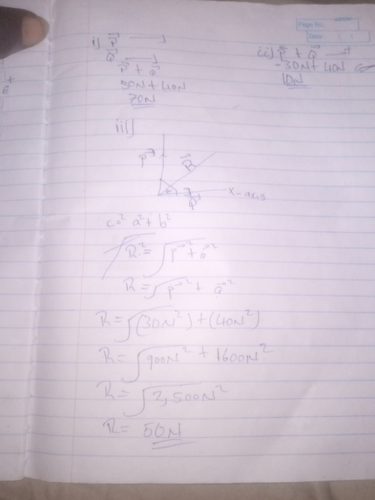 i) P →
Q →
P + Q
30N + 40N
70N
ii) P + Q
-30N + 40N
10N
iii)
P R
θ
x-axis
c² = a² + b²
R² = √P² + Q²
R = √P² + Q²
R = √(30N²) + (40N²)
R = √900N² + 1600N²
R = √2,500N²
R = 50N